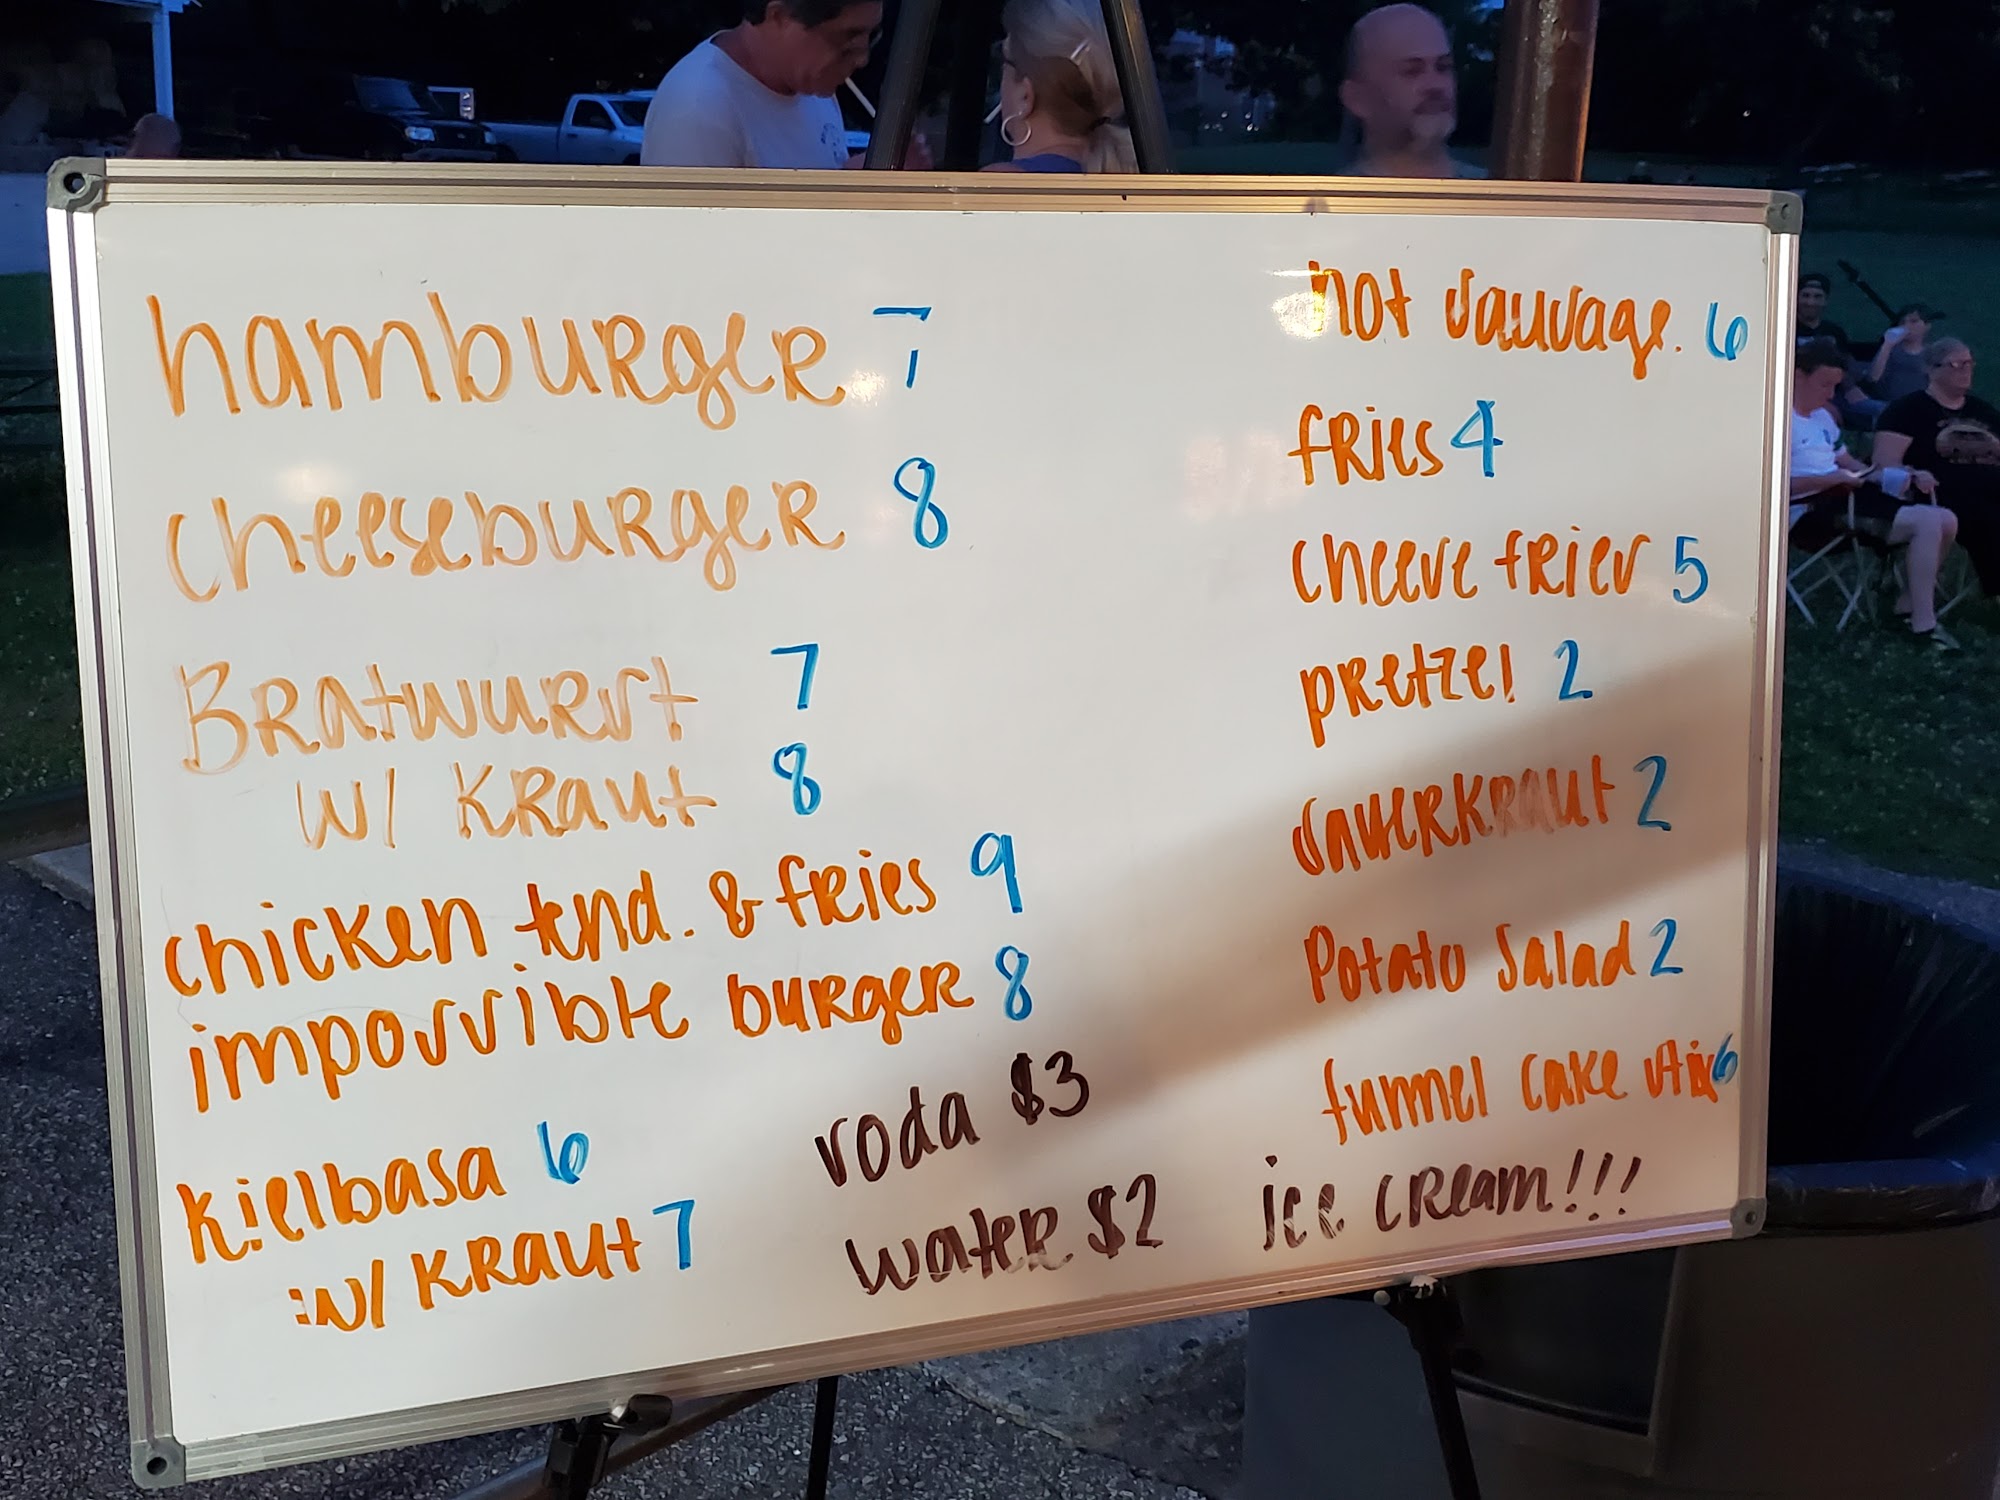 hamburger 7
cheeseburger 8
Bratwurst 7
w/ kraut 8
chicken tend. & fries 9
impossible burger 8
kielbasa 6
w/ kraut 7
soda $3
water $2
hot sausage. 6
fries 4
cheese fries 5
pretzel 2
sauerkraut 2
Potato Salad 2
funnel cake stix 6
ice cream!!!